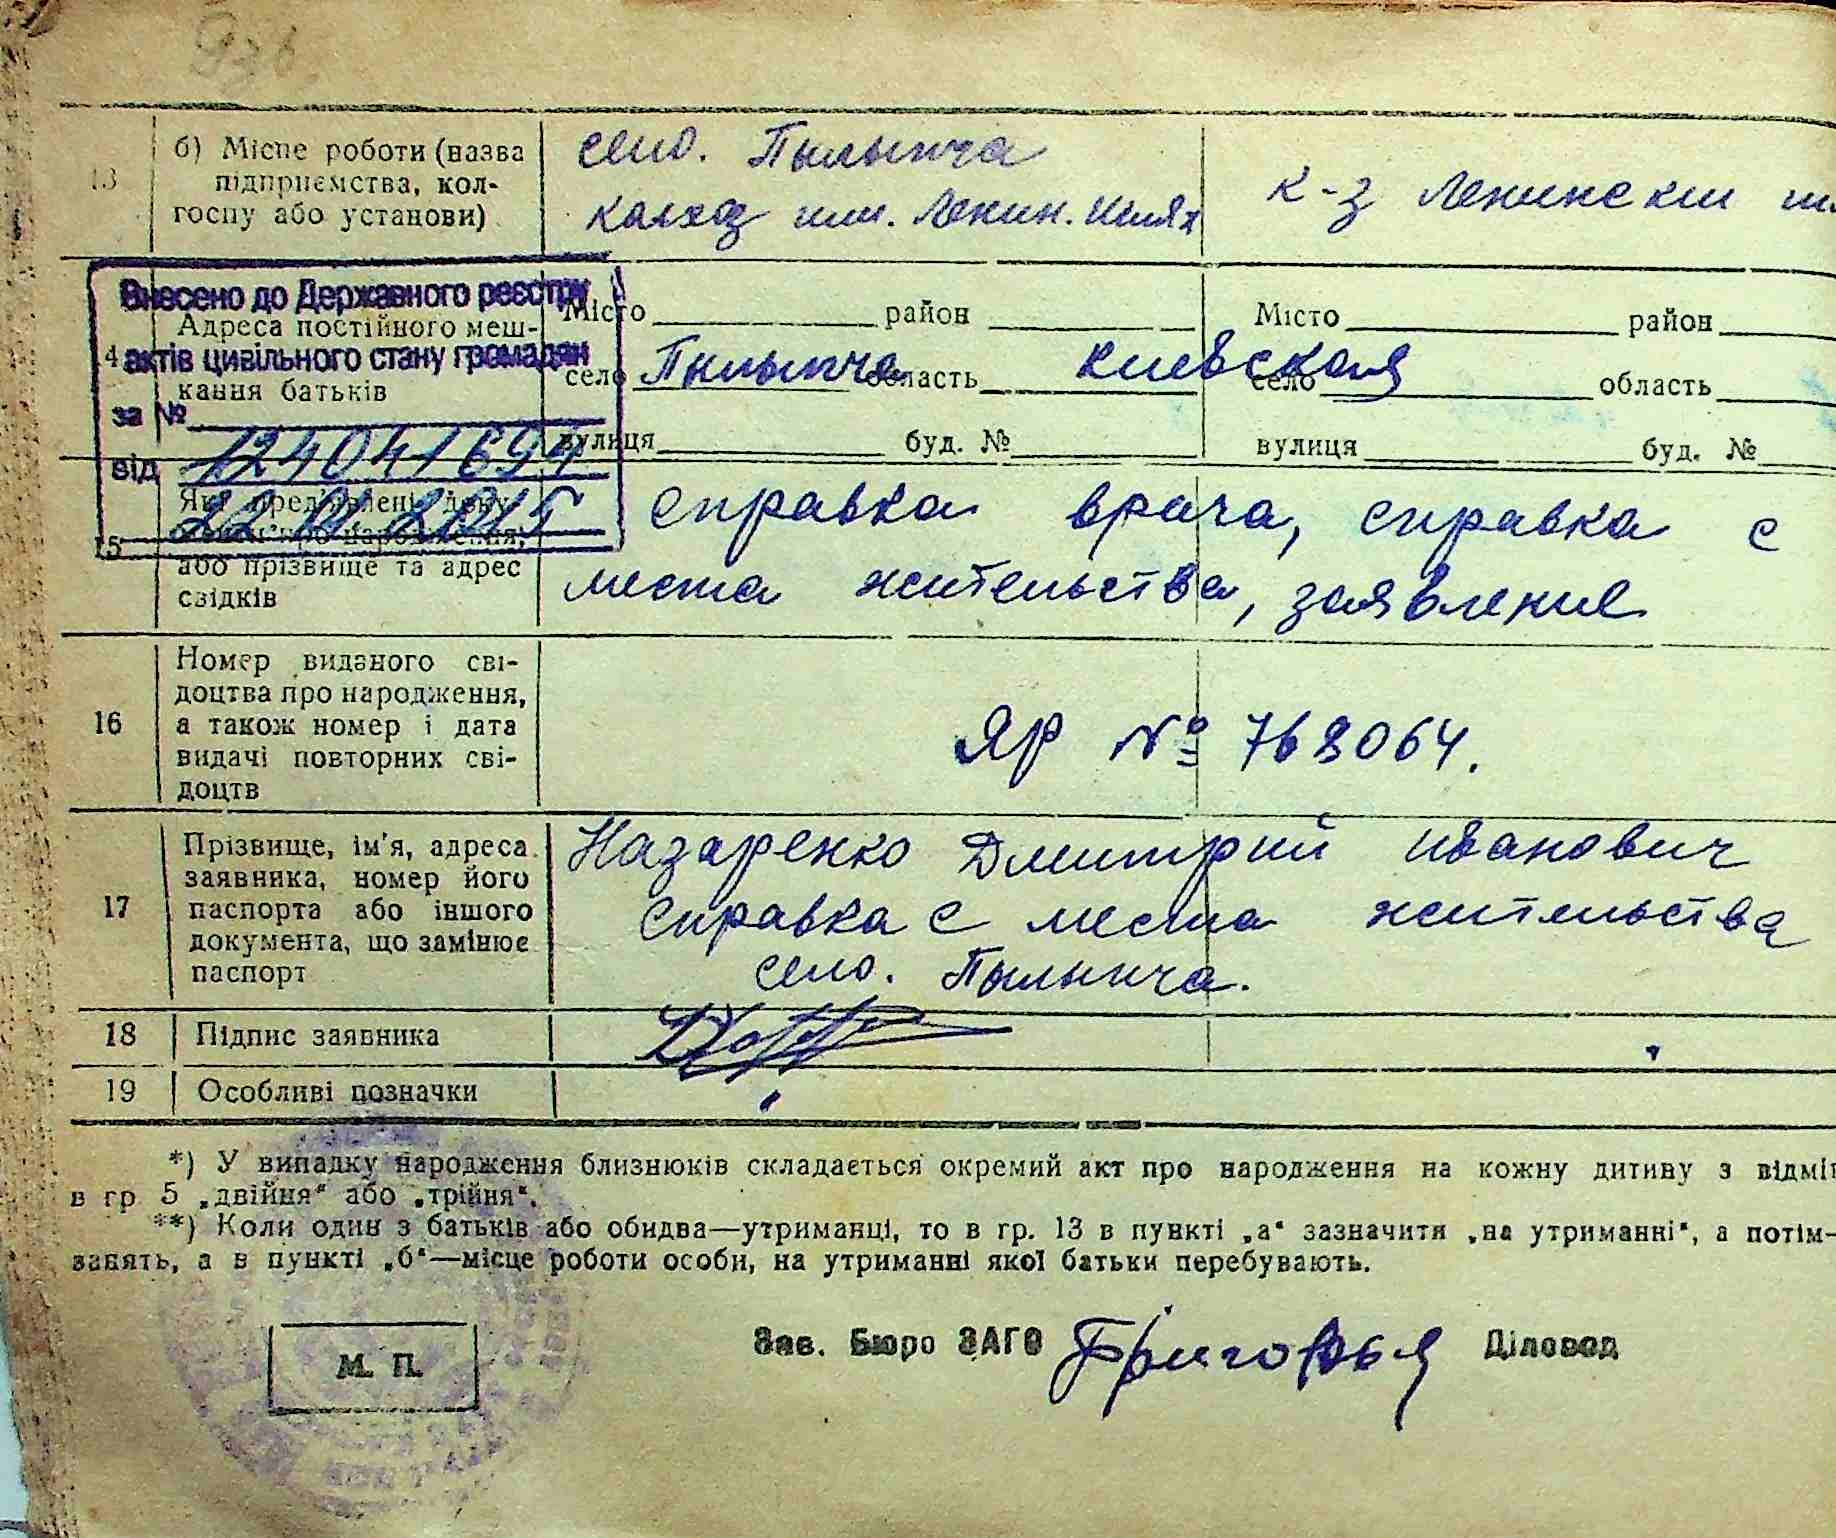 13 б) Місце роботи (назва підприємства, колгоспу або установи)
село. Пылыпча
колхоз им. Ленин. Шлях
к-з Ленинский
Внесено до Державного реєстру
актів цивільного стану громадян
за № 124041694
від 22 01 2015
Адреса постійного меш-
кання батьків
Місто район
село Пылыпча область Киевская
вулиця буд. №
Місто район
село область
вулиця буд. №
15
або прізвище та адрес
свідків
справка врача, справка с
места жительства, заявление
16
Номер виданого сві-
доцтва про народження,
а також номер і дата
видачі повторних сві-
доцтв
ЯР № 768064.
17
Прізвище, ім'я, адреса
заявника, номер його
паспорта або іншого
документа, що замінює
паспорт
Назаренко Дмитрий Иванович
справка с места жительства
село. Пылыпча.
18 Підпис заявника
19 Особливі позначки
*) У випадку народження близнюків складається окремий акт про народження на кожну дитину з відмі
в гр 5 „двійня“ або „трійня“.
**) Коли один з батьків або обидва—утриманці, то в гр. 13 в пункті „а“ зазначити „на утриманні“, а потім—
занять, а в пункті „б“—місце роботи особи, на утриманні якої батьки перебувають.
М. П.
Зав. Бюро ЗАГС Діловод